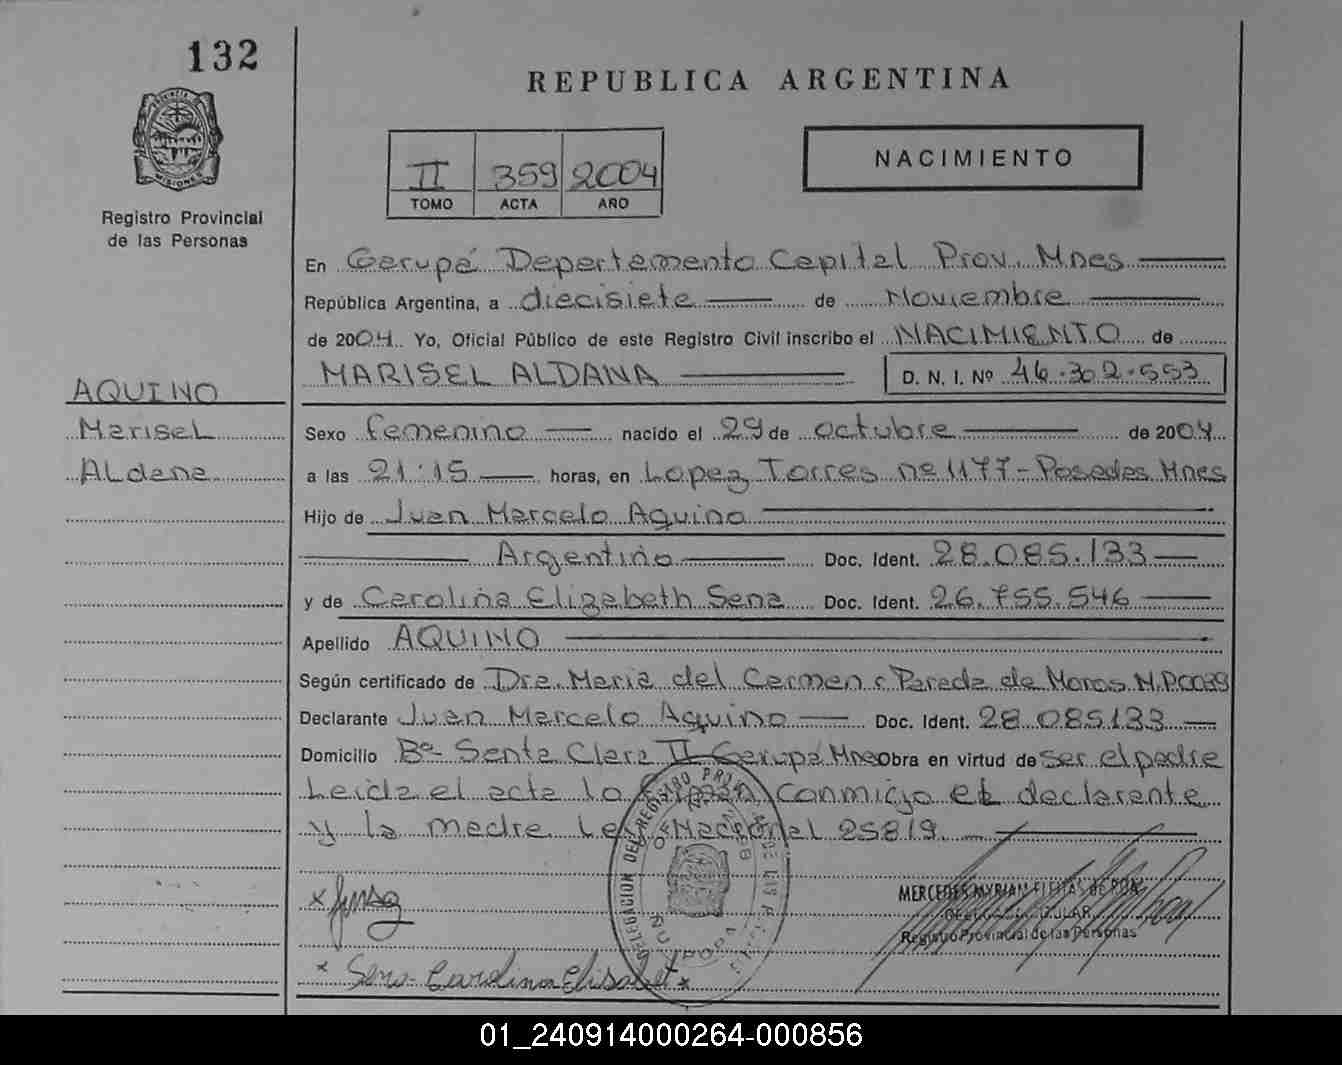 132
REPUBLICA ARGENTINA
PROVINCIA DE
MISIONES
Registro Provincial
de las Personas
II 359 2004
TOMO ACTA AÑO
NACIMIENTO
En Garupá Departamento Capital Prov. Mnes
República Argentina, a diecisiete de Noviembre
de 2004 Yo, Oficial Público de este Registro Civil inscribo el NACIMIENTO de
MARISEL ALDANA D. N. I. Nº 46.302.553
AQUINO
Marisel
Aldana
Sexo femenino nacido el 29 de octubre de 2004
a las 21:15 horas, en Lopez Torres nº 1177 - Posadas Mnes
Hijo de Juan Marcelo Aquino
Argentino Doc. Ident. 28.085.133
y de Carolina Elizabeth Sena Doc. Ident. 26.755.546
Apellido AQUINO
Según certificado de Dra. Maria del Carmen Pareda de Moras M.P.0039
Declarante Juan Marcelo Aquino Doc. Ident. 28.085133
Domicilio Bº Santa Clara II Garupá Mnes Obra en virtud de ser el padre
Leida el acta la firman conmigo el declarante
y la madre Ley Nacional 25819
DELEGACION DEL REGISTRO PROVINCIAL DE LAS PERSONAS
MERCEDES MYRIAN
DELEGADA TITULAR
Registro Provincial de las Personas
Sena Carolina Elisabet
01_240914000264-000856